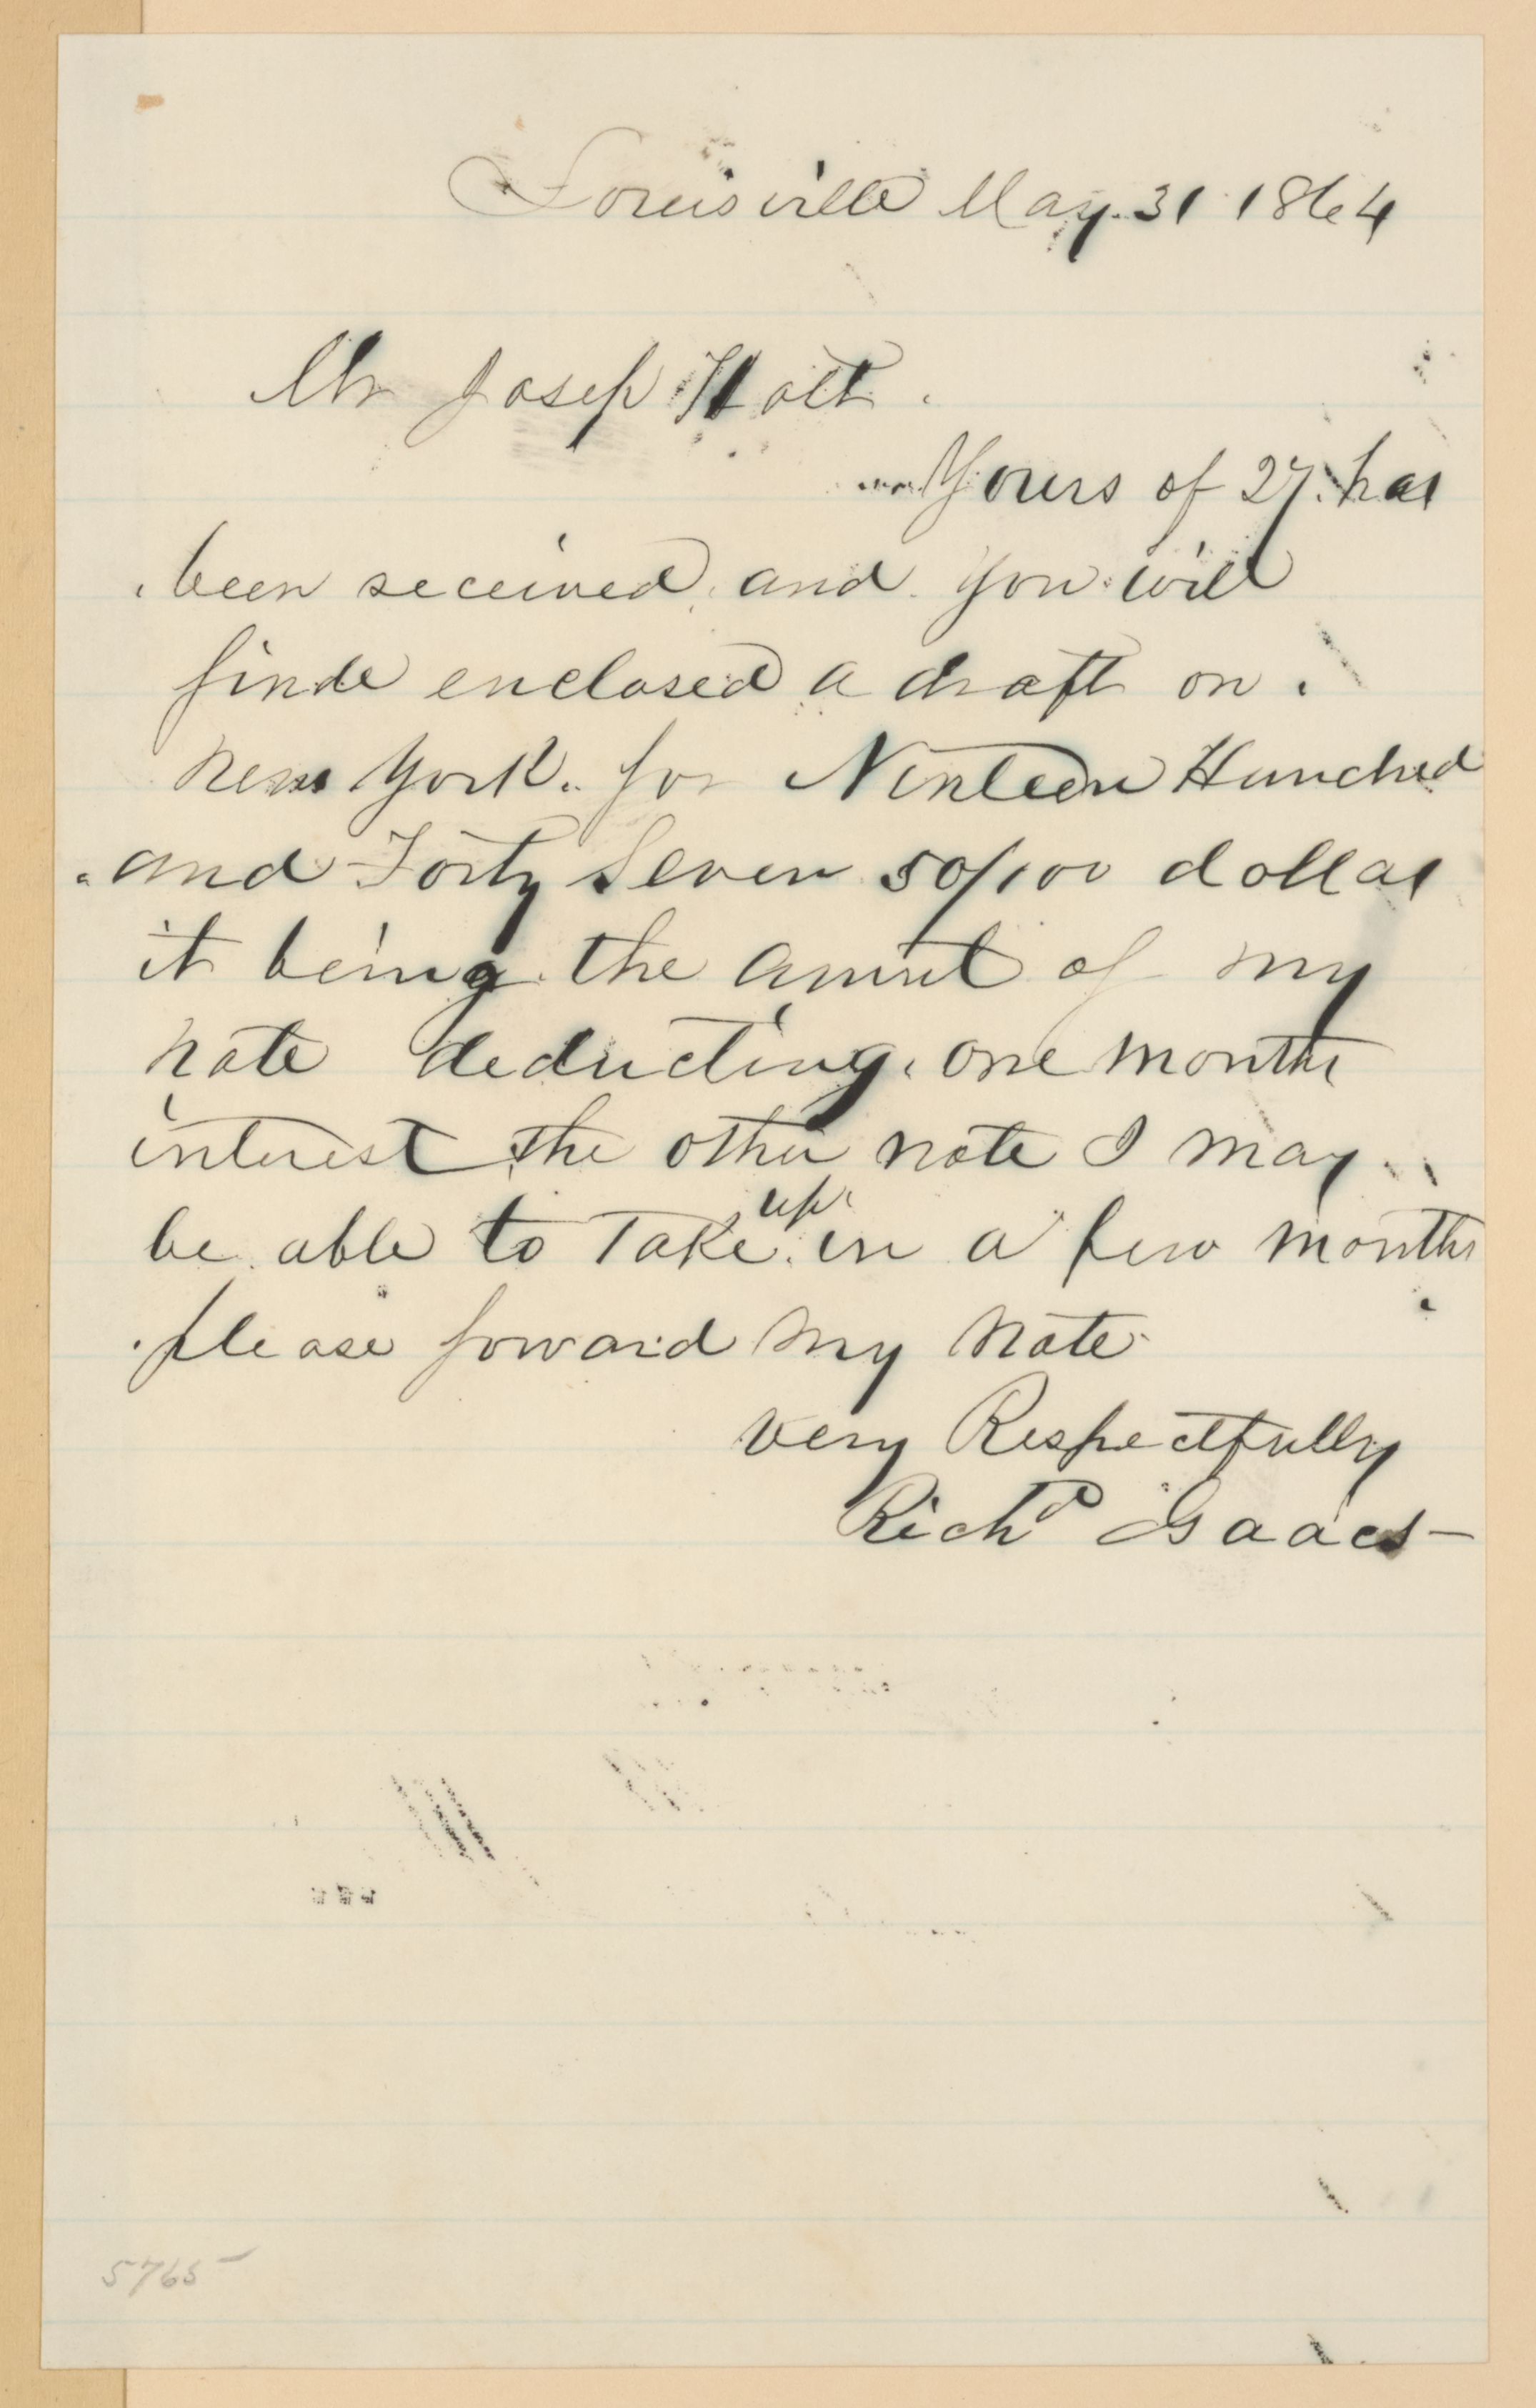 Louisville May 31 1864
Mr Joseph Holt.
Yours of 27. has
been received, and you will
finde enclosed a draft on
New York. for Ninteen Hundred
and Forty Seven 50/100 dollas
it being the amut of my
note deducting one months
interest the other note I may
be able to take up in a few months
please foward my note
very Respectfully
Richd Isaacs
5765